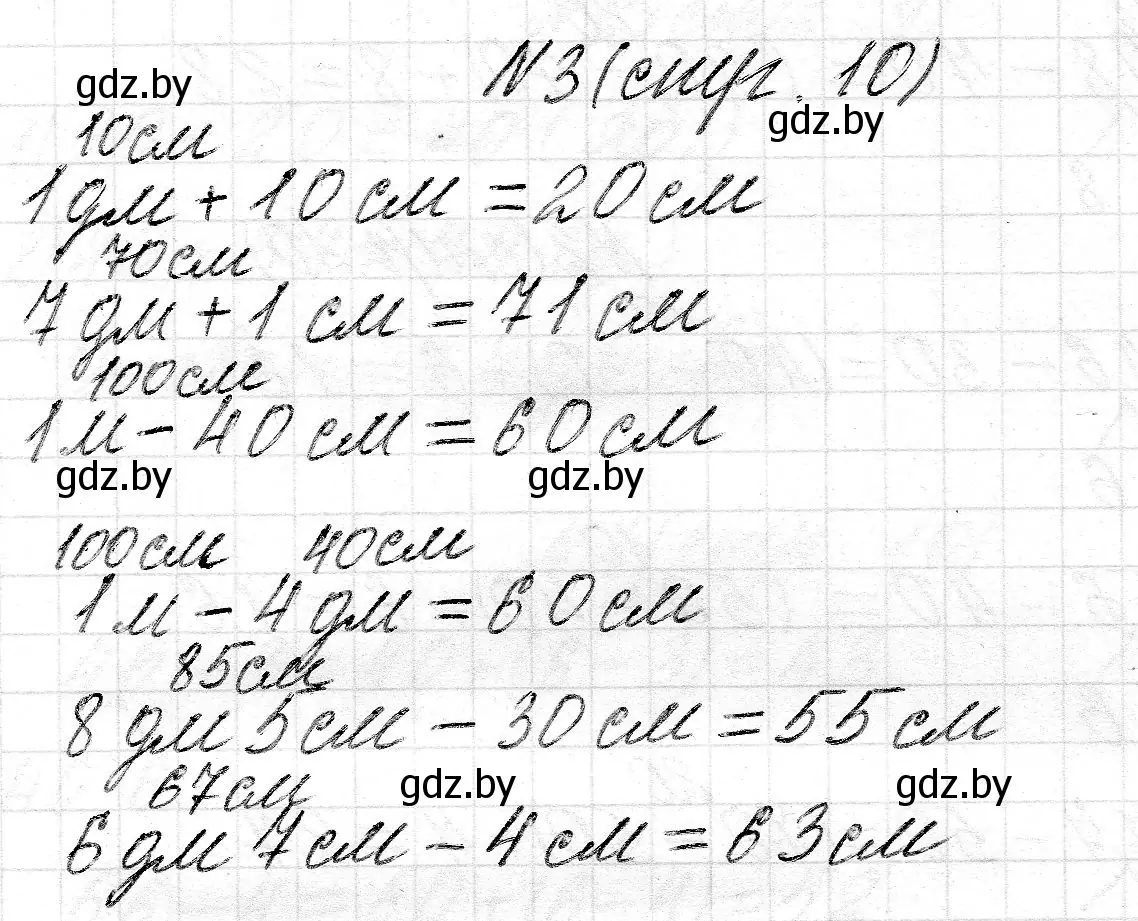 №3 (стр. 10)
gdz.by
gdz.by
10см
1дм + 10см = 20см
70см
7дм + 1см = 71см
100см
1м - 40см = 60см
gdz.by gdz.by
100см 40см
1м - 4дм = 60см
85см
8дм 5см - 30см = 55см
67см
gdz.by gdz.by
6дм 7см - 4см = 63см